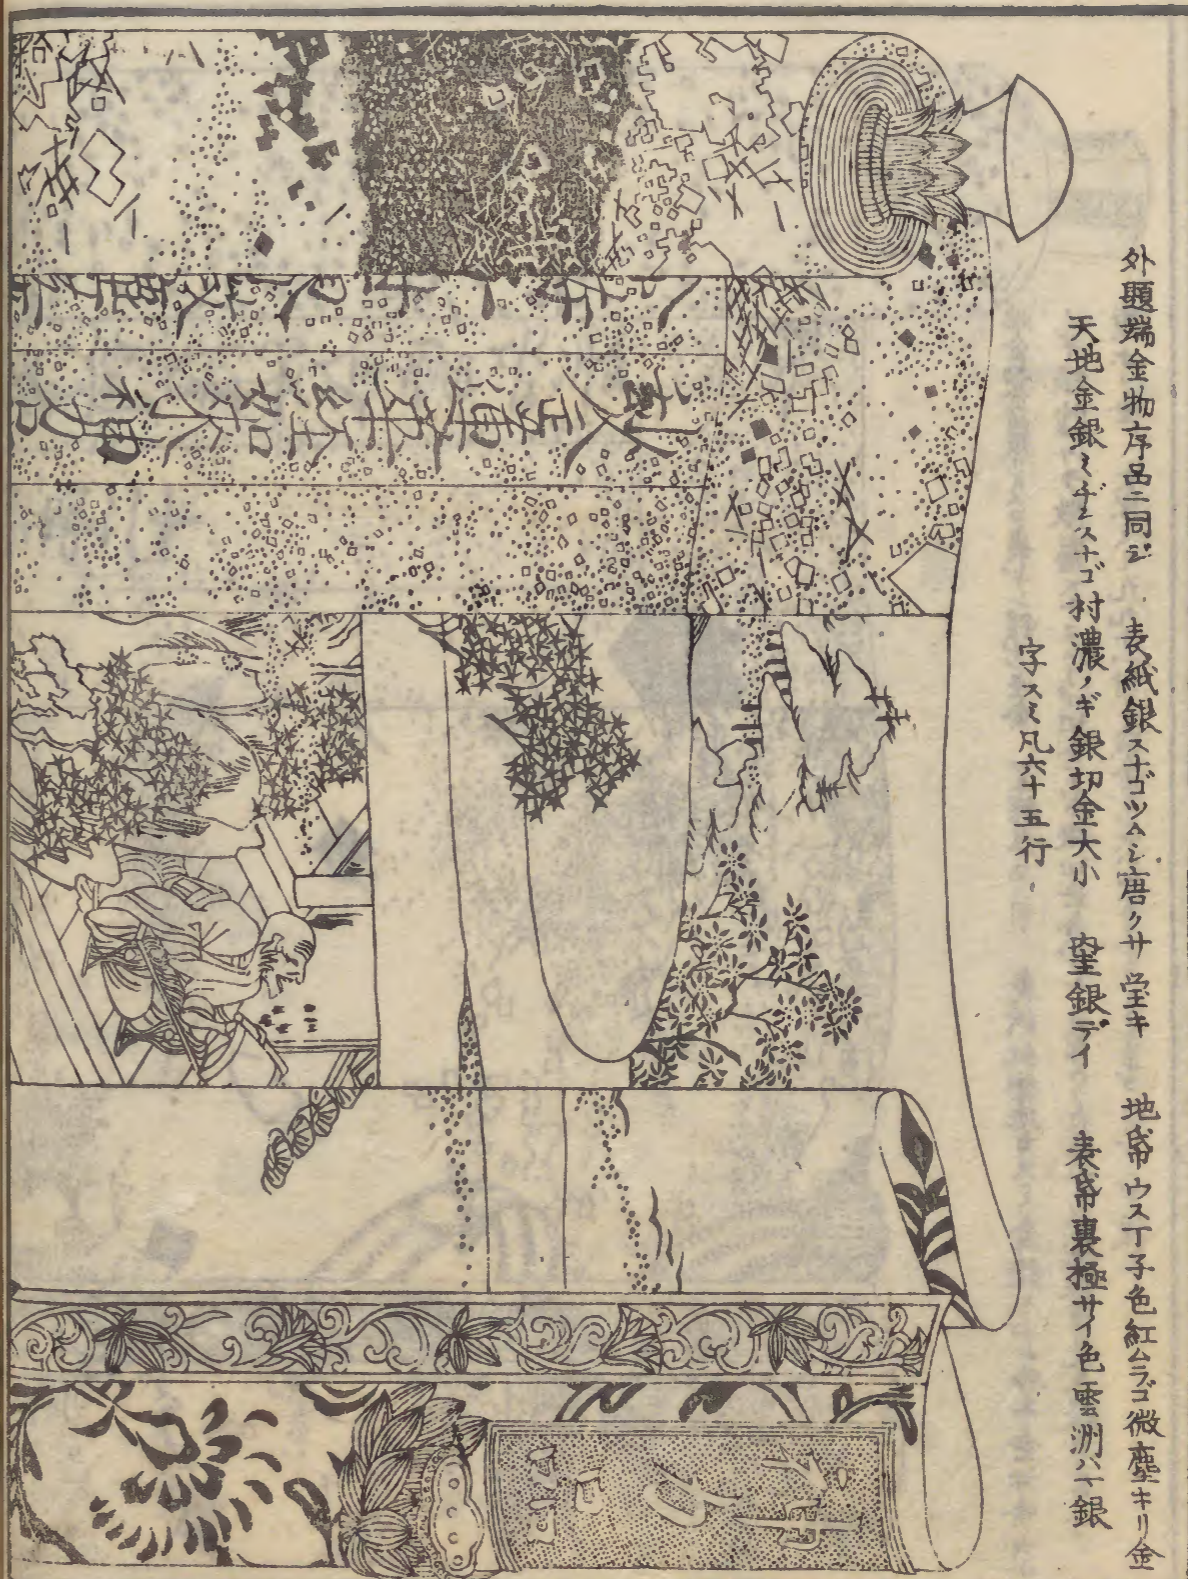 外題端金物序品ニ同ジ　表紙銀スナゴツムシ唐クサ　地帋ウス丁子色紅ムラゴ微塵キリ金
天地金銀ミヂンスナゴ村濃ノギ銀切金大小　銀デイ　表帋裏極サイ色雲洲ハマ銀
字スミ凡六十五行
妙法蓮華經如来神力
神力品